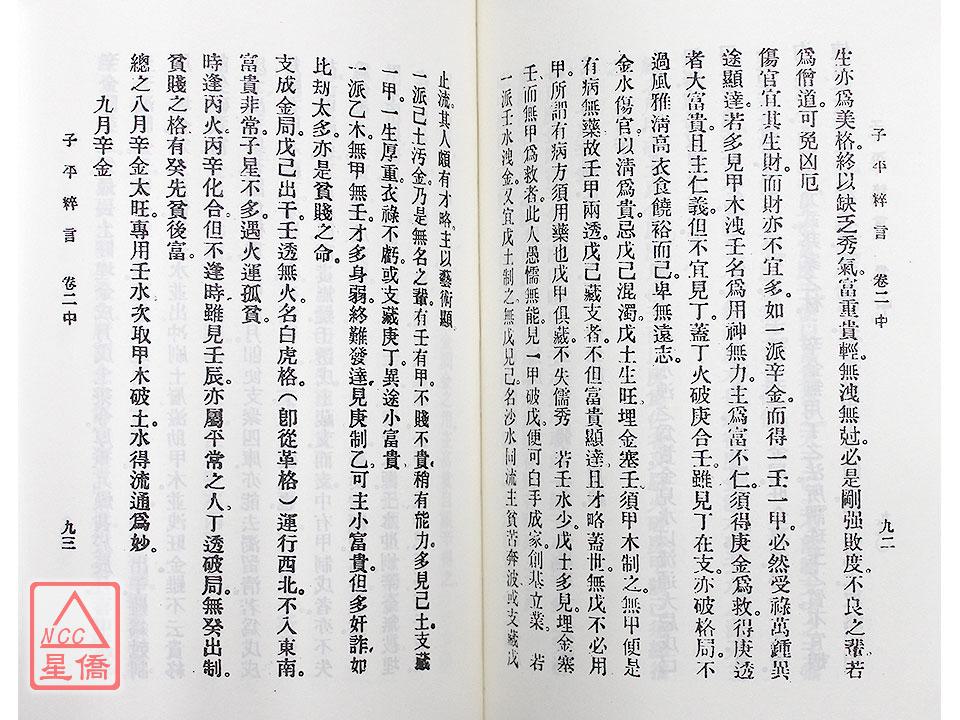 生亦爲美格終以缺乏秀氣富重貴輕。無洩無尅必是剛强敗度不良之輩若
爲僧道可免凶厄
傷官宜其生財而財亦不宜多如一派辛金。而得一壬一甲必然受祿萬鍾異
途顯達若多見甲木洩壬名爲用神無力主爲富不仁須得庚金爲救得庚透
者大富貴且主仁義但不宜見丁蓋丁火破庚合壬雖見丁在支亦破格局不
過風雅淸高衣食饒裕而已卑無遠志。
金水傷官以淸爲貴忌戊己混濁戊土生旺埋金塞壬須甲木制之無甲便是
有病無藥故壬甲兩透戊己藏支者。不但富貴顯達且才略蓋世無戊不必用
甲。所謂有病方須用藥也戊甲俱藏不失儒秀 若壬水少。戊土多見埋金塞
壬。而無甲爲救者。此人愚懦無能見一甲破戊便可白手成家創基立業。 若
一派壬水洩金又宜戊土制之無戊見己名沙水同流主貧苦奔波或支藏戊
子平粹言 卷二中 九二
止流。其人頗有才略主以藝術顯
一派己土汚金乃是無名之輩有壬有甲不賤不貴稍有能力多見己土支藏
一甲一生厚重衣祿不虧或支藏庚丁異途小富貴
一派乙木無甲無壬才多身弱終難發達見庚制乙可主小富貴但多奸詐如
比刼太多亦是貧賤之命
支成金局戊己出干壬透無火名白虎格(卽從革格)運行西北不入東南
富貴非常子星不多遇火運孤貧
時逢丙火丙辛化合但不逢時雖見壬辰亦屬平常之人丁透破局無癸出制
貧賤之格有癸先貧後富
總之八月辛金太旺專用壬水次取甲木破土水得流通爲妙。
九月辛金
子平粹言 卷二中 九三
NCC
星僑